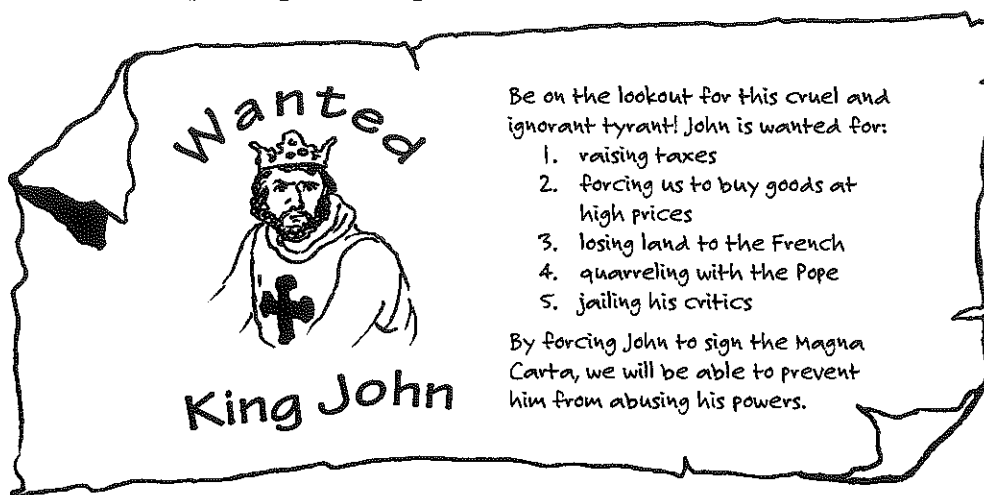 Wanted
King John
Be on the lookout for this cruel and
ignorant tyrant! John is wanted for:
1. raising taxes
2. forcing us to buy goods at
high prices
3. losing land to the French
4. quarreling with the Pope
5. jailing his critics
By forcing John to sign the Magna
Carta, we will be able to prevent
him from abusing his powers.